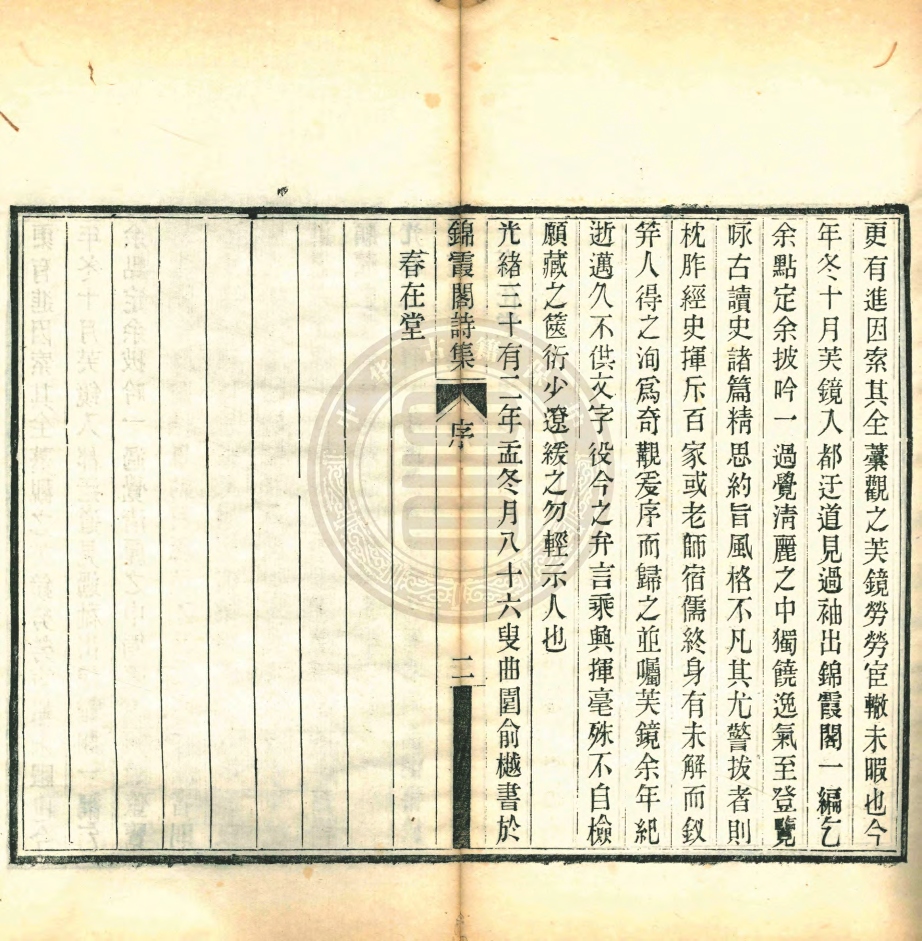 更有進因索其全藁觀之芙鏡勞勞宦轍未暇也今
年冬十月芙鏡入都迂道見過袖出錦霞閣一編乞
余點定余披吟一過覺淸麗之中獨饒逸氣至登覽
咏古讀史諸篇精思約旨風格不凡其尤警拔者則
枕胙經史揮斥百家或老師宿儒終身有未解而釵
笄人得之洵爲奇觀爰序而歸之並囑芙鏡余年紀
逝邁久不供文字役今之弁言乘興揮毫殊不自檢
願藏之篋衍少遼緩之勿輕示人也
光緒三十有二年孟冬月八十六叟曲園俞樾書於
錦霞閣詩集
序
二
春在堂